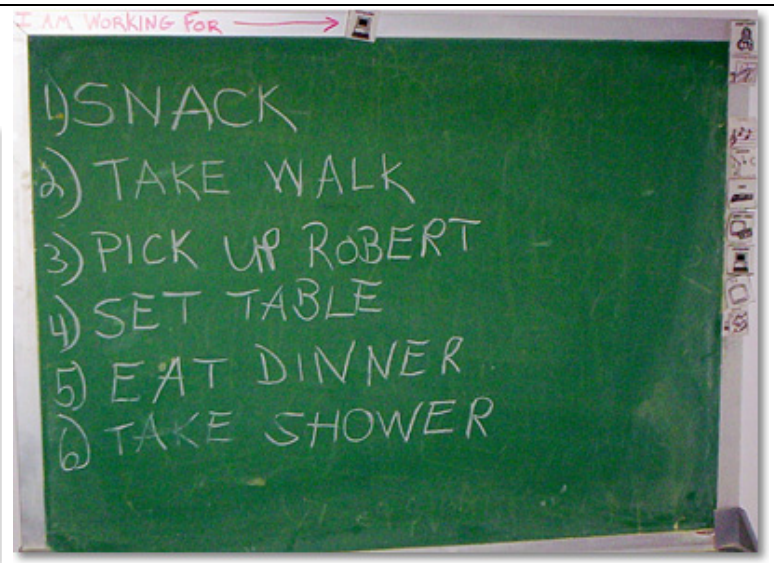 I AM WORKING FOR
1) SNACK
2) TAKE WALK
3) PICK UP ROBERT
4) SET TABLE
5) EAT DINNER
6) TAKE SHOWER